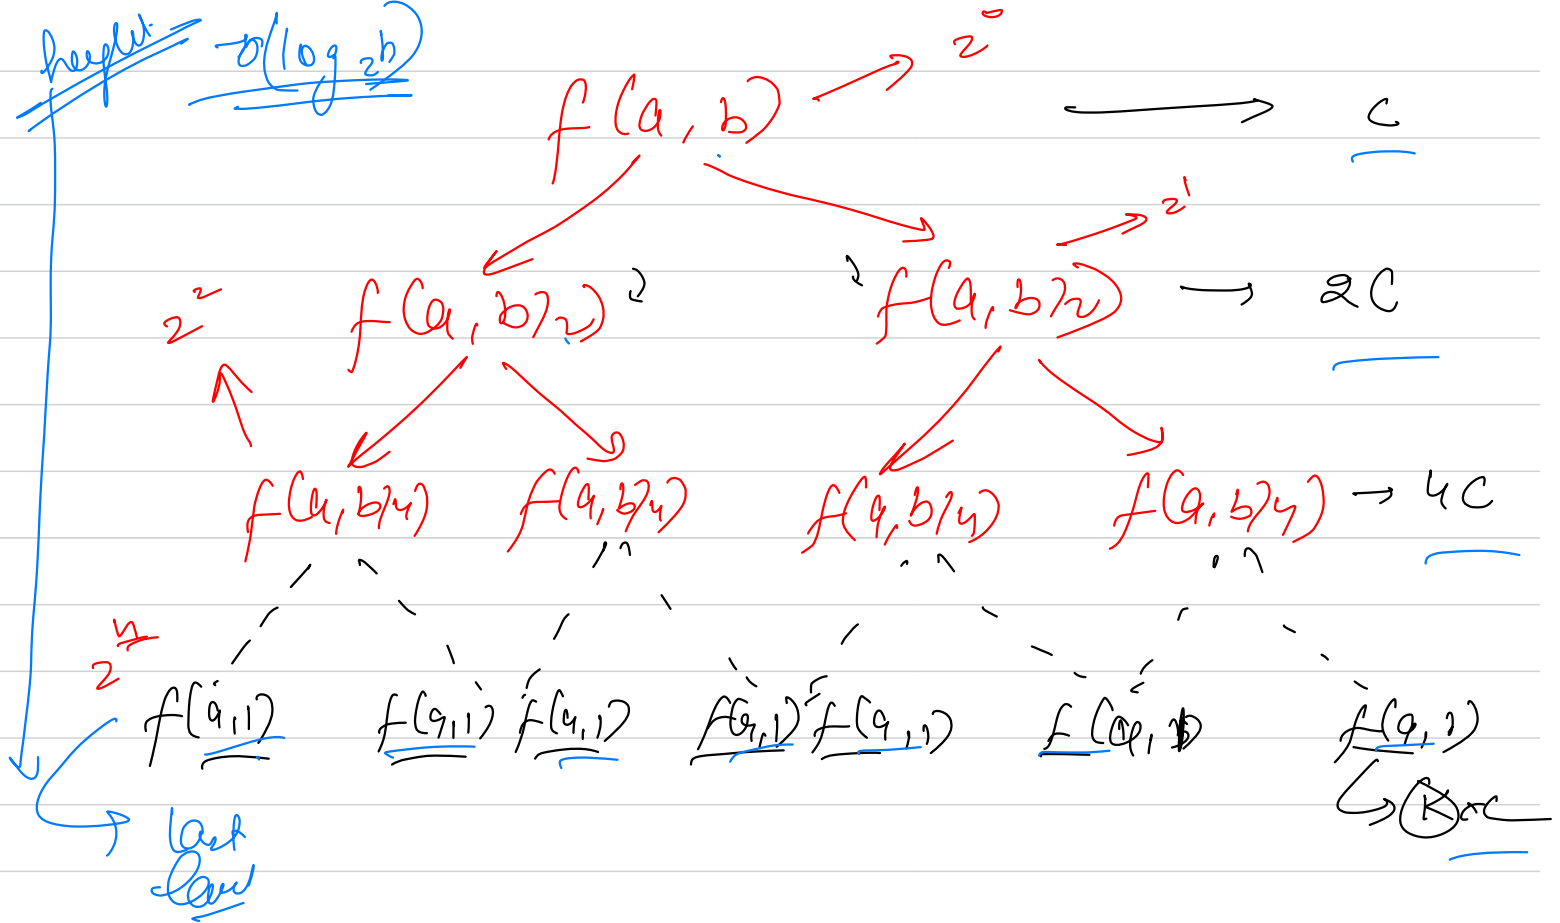 height - O(log₂b)
2⁰
f(a, b) → C
2¹
2² f(a, b/2) f(a, b/2) → 2C
f(a, b/4) f(a, b/4) f(a, b/4) f(a, b/4) → 4C
2ⁿ
f(a, 1) f(a, 1) f(a, 1) f(a, 1) f(a, 1) f(a, 1) f(a, 1)
K × C
last
level